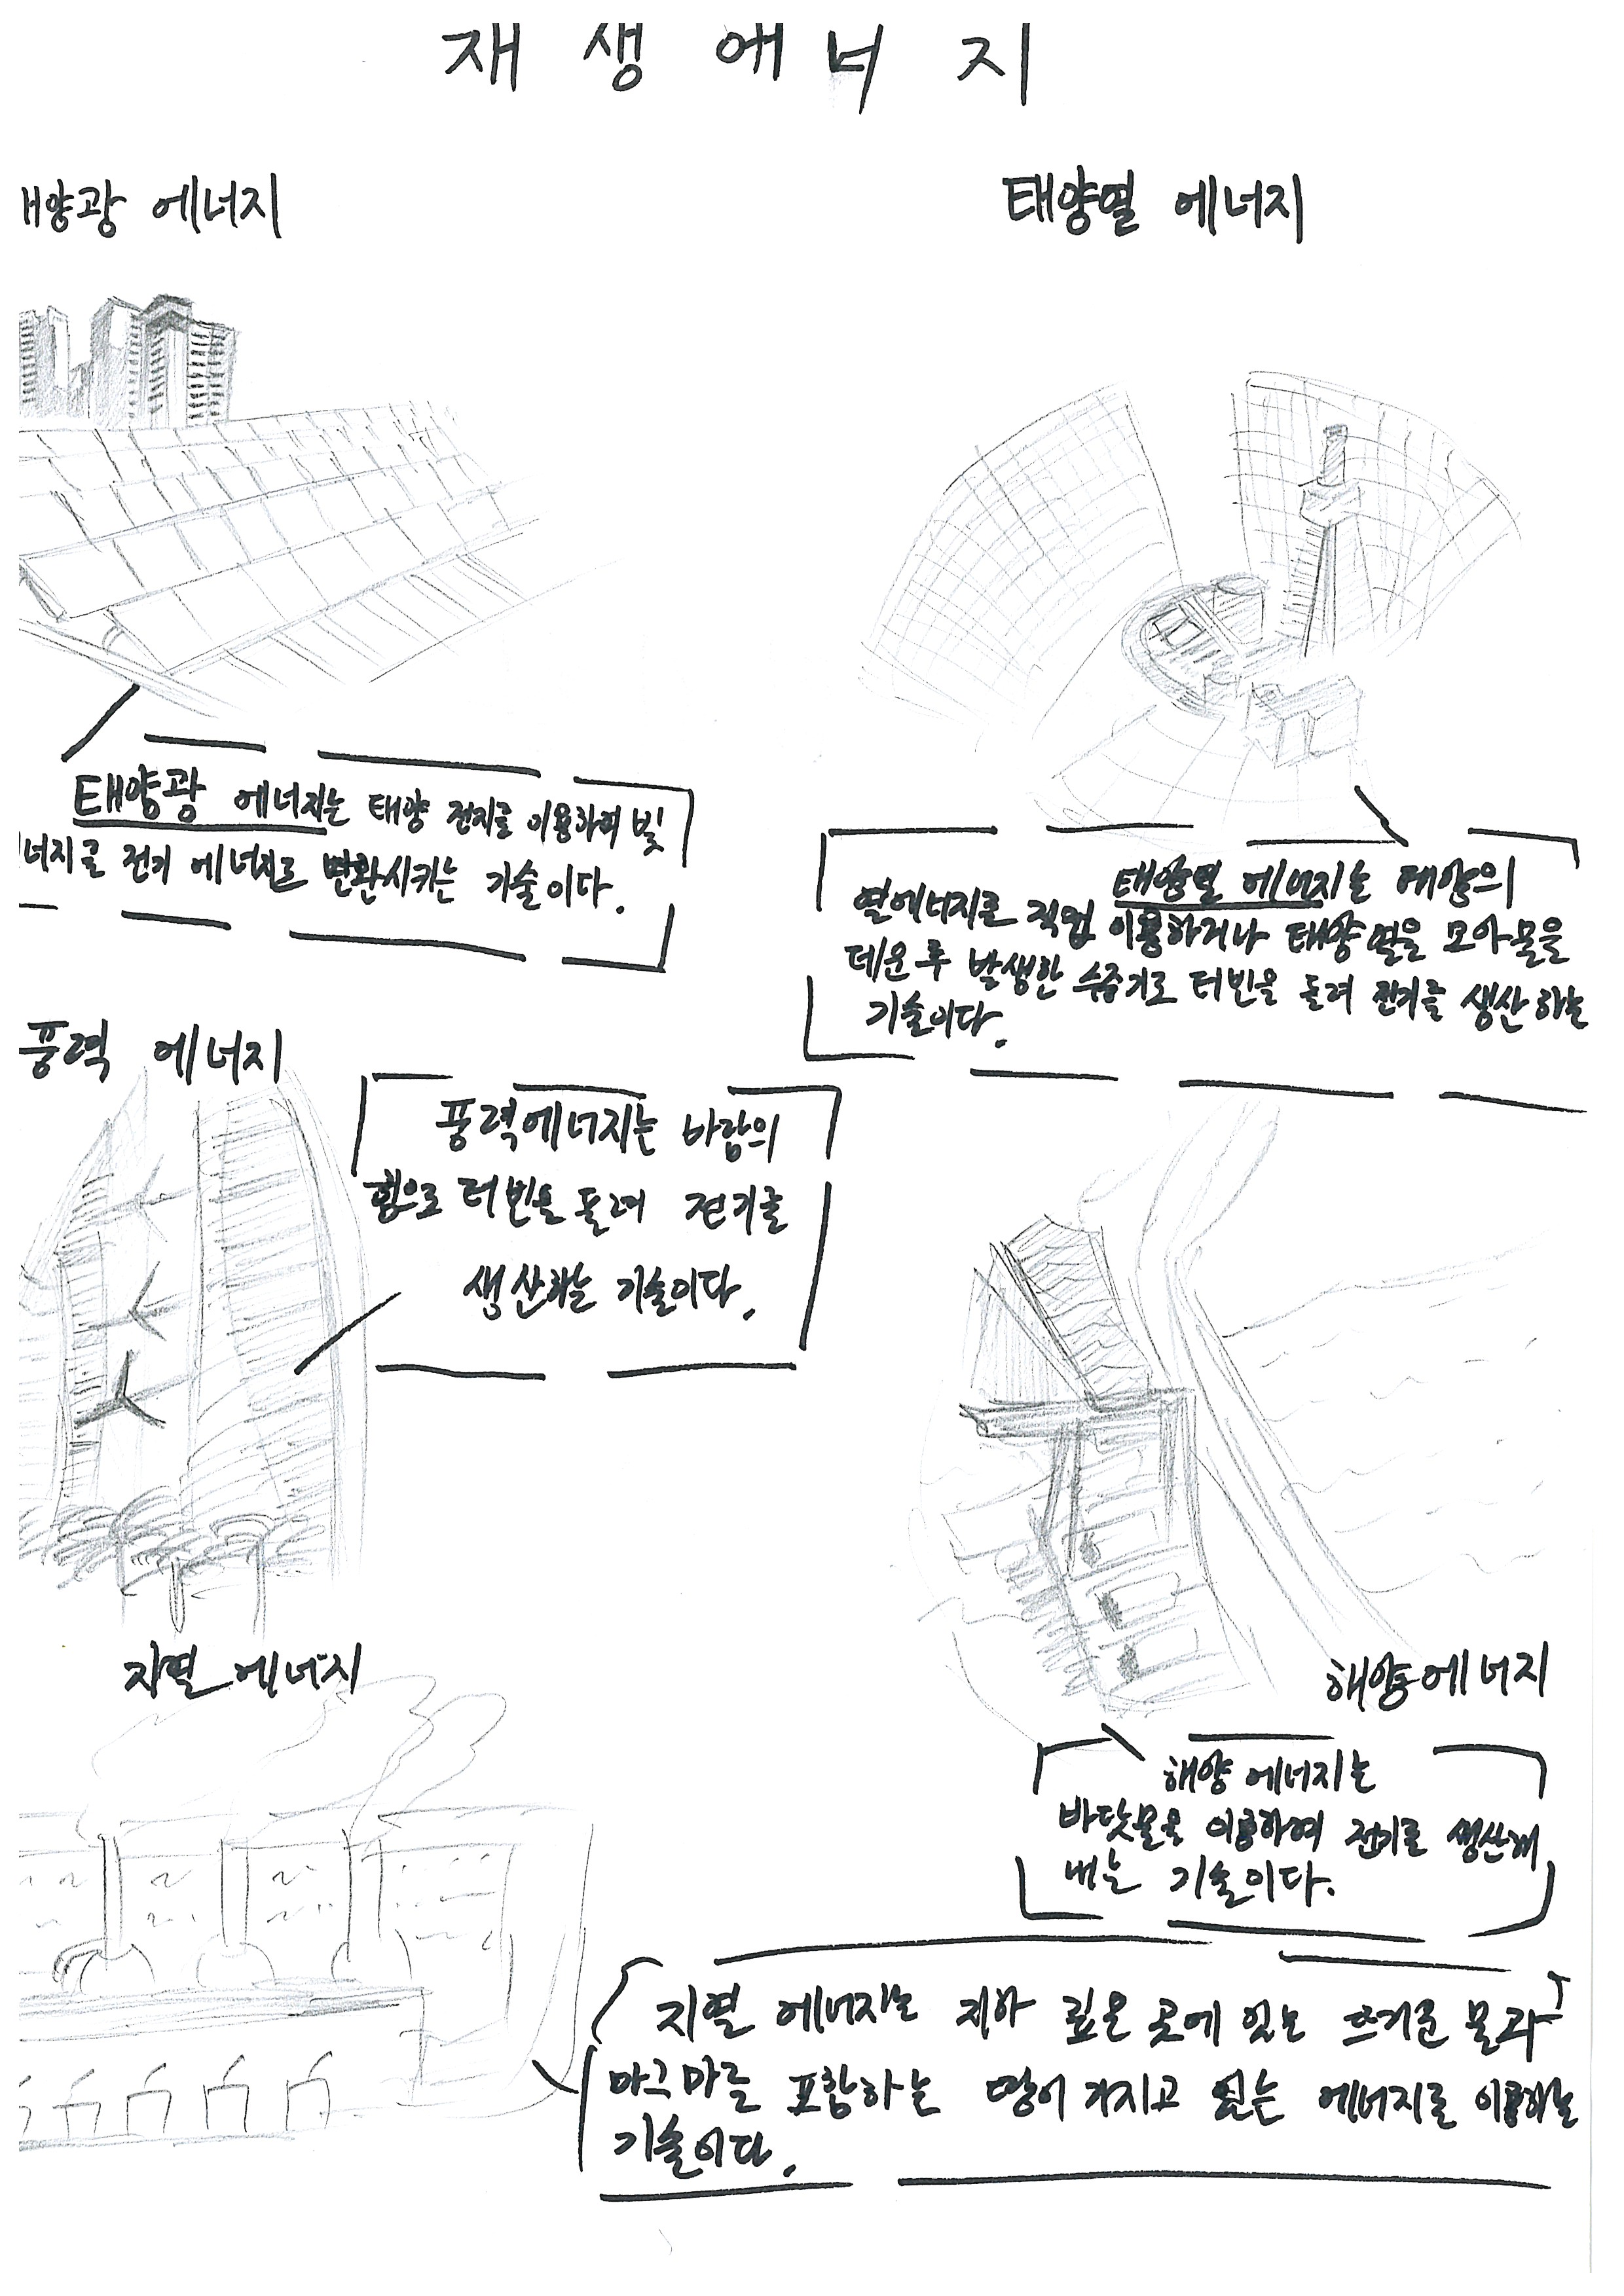 재생에너지
태양광 에너지
태양열 에너지
태양광 에너지는 태양 전지를 이용하여 빛
너지를 전기 에너지로 변환시키는 기술이다.
태양열 에너지는 태양의
열에너지를 직접 이용하거나 태양열을 모아 물을
데운 후 발생한 수증기로 터빈을 돌려 전기를 생산하는
기술이다.
풍력 에너지
풍력에너지는 바람의
힘으로 터빈을 돌려 전기를
생산하는 기술이다.
지열 에너지
해양에너지
해양 에너지는
바닷물을 이용하여 전기를 생산해
내는 기술이다.
지열 에너지는 지하 깊은 곳에 있는 뜨거운 물과
마그마를 포함하는 땅이 가지고 있는 에너지를 이용하는
기술이다.